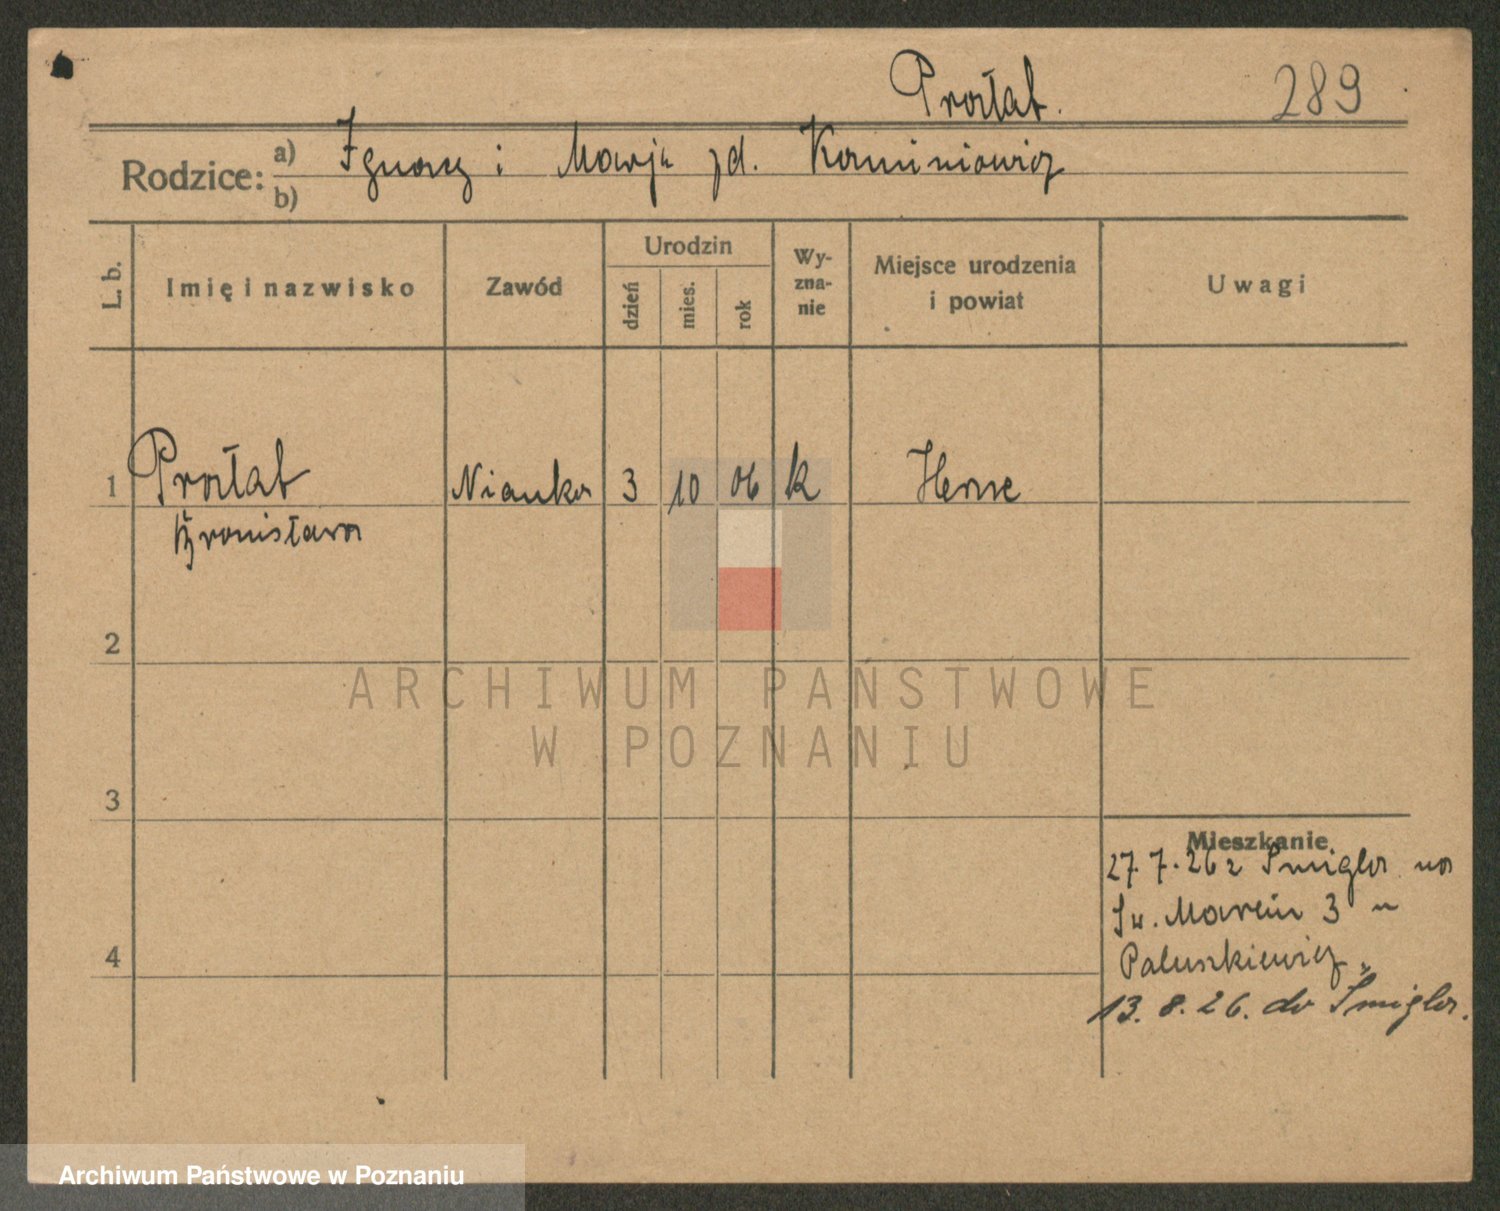 Prałat. 289
Rodzice: a) Ignacy i Marja zd. Kaminiowicz
b)
L. b. Imię i nazwisko Zawód Urodzin dzień mies. rok Wy-zna-nie Miejsce urodzenia i powiat Uwagi
1 Prałat Nianka 3 10 06 k Herne
Bronisława
2
3
4
Mieszkanie
27.7.26 z Śmigla na
Św. Marcin 3 u
Paluszkiewicz„
13.8.26. do Śmigla.
ARCHIWUM PAŃSTWOWE
W POZNANIU
Archiwum Państwowe w Poznaniu